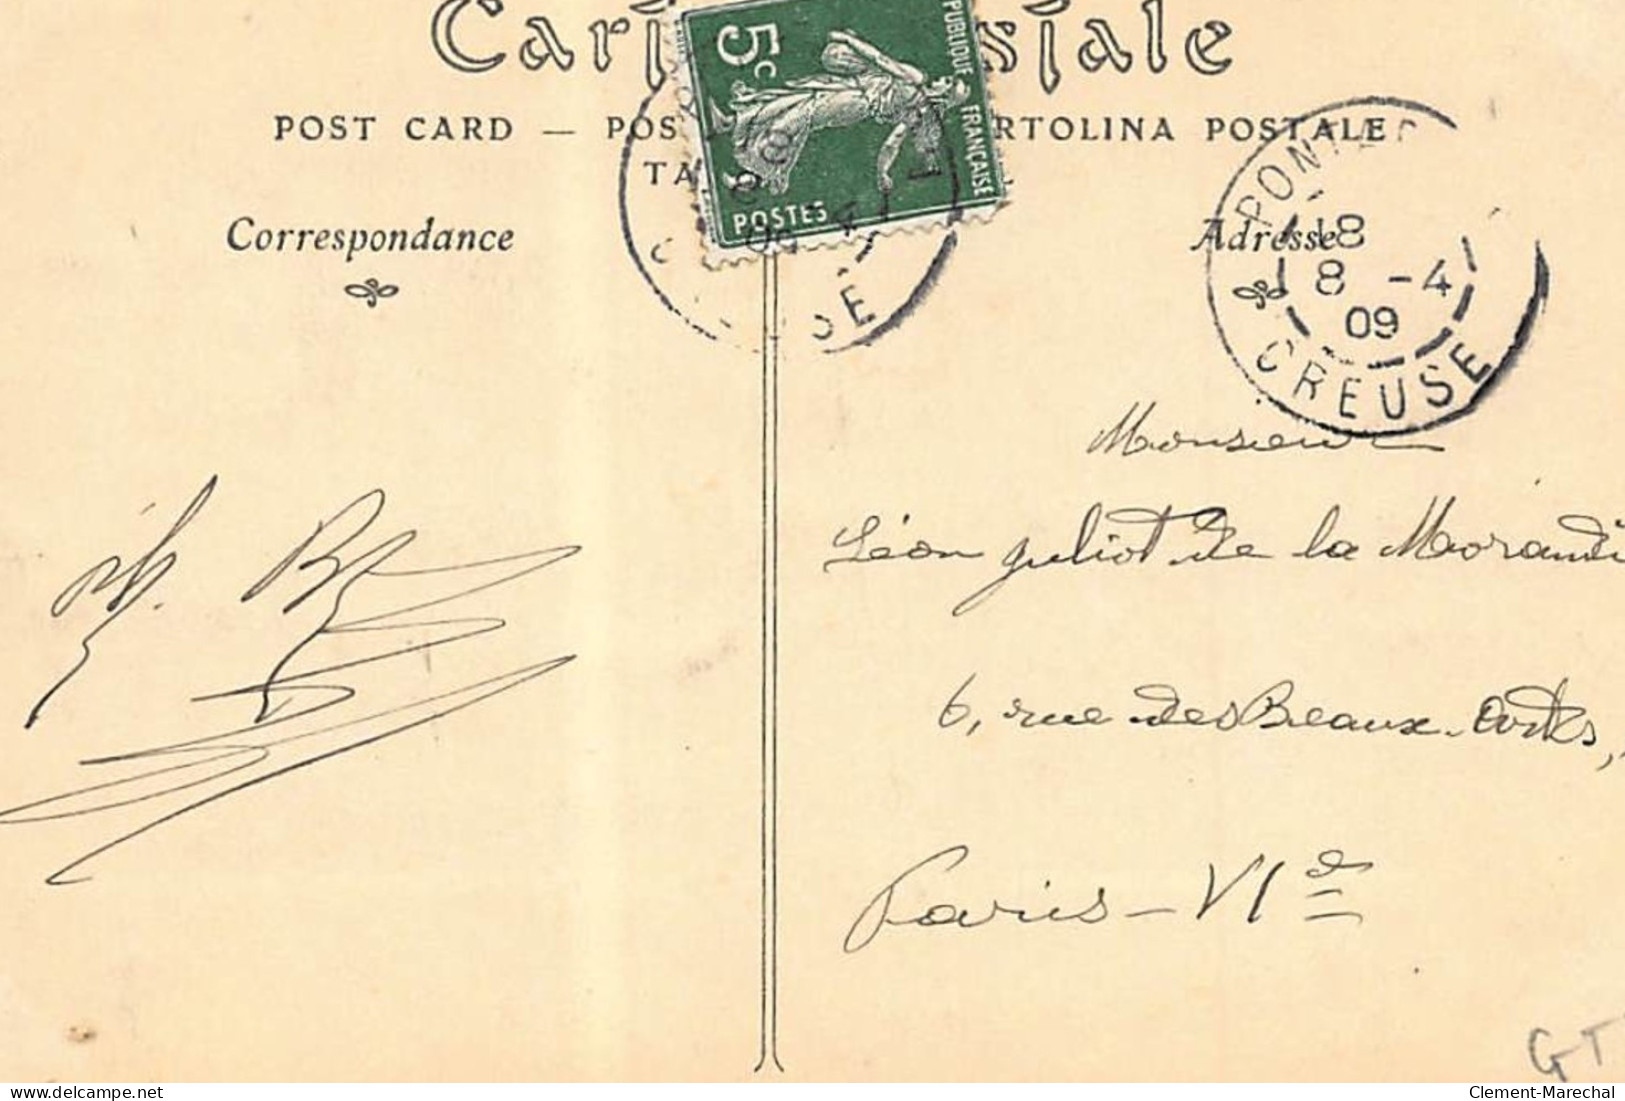 Carte Postale
POST CARD — POS RTOLINA POSTALE
TA
5c
REPUBLIQUE FRANÇAISE
POSTES
Correspondance
Adresse
18
8 -4
09
CREUSE
Monsieur
Léon Juliot de la Morandi
6, rue des Beaux-Arts,
Paris - VIe
GT
Clement-Marechal